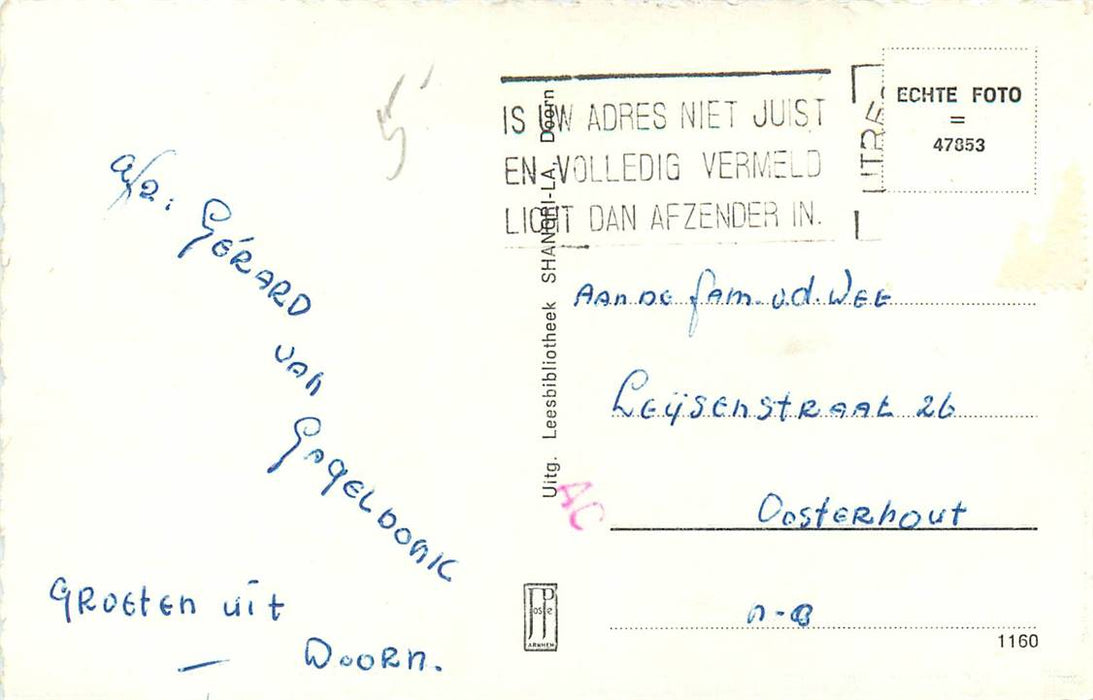 5
Afz. Gérard
van
Gageldonk
Groeten uit
Doorn.
IS UW ADRES NIET JUIST
EN VOLLEDIG VERMELD
LICHT DAN AFZENDER IN.
ECHTE FOTO
=
47853
Uitg. Leesbibliotheek SHANGRI-LA, Doorn
Aan de fam. v.d. Wee
Leijsenstraat 26
Oosterhout
n-B
AC
Poste
ARNHEM
1160